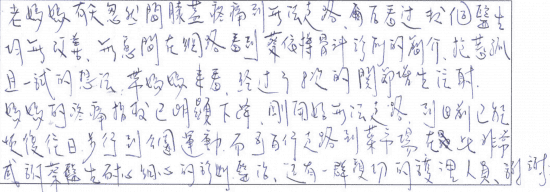 老媽媽有天忽然間膝蓋疼痛到無法走路、前後看過好幾個醫生
均無改善、無意間在網路看到葉俊樟骨科診所的簡介、抱著姑
且一試的想法、帶媽媽來看、經過了 次的關節增生注射、
媽媽的疼痛指數已明顯下降、剛開始無法走路、到目前已經
恢復往日步行到公園運動、而可自行走路到菜市場、在此非常
感謝葉醫生耐心細心的診斷醫治、還有一群親切的護理人員、謝謝